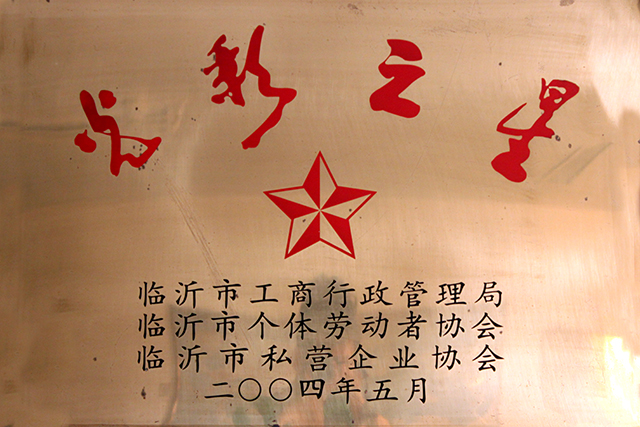 光彩之星
临沂市工商行政管理局
临沂市个体劳动者协会
临沂市私营企业协会
二〇〇四年五月